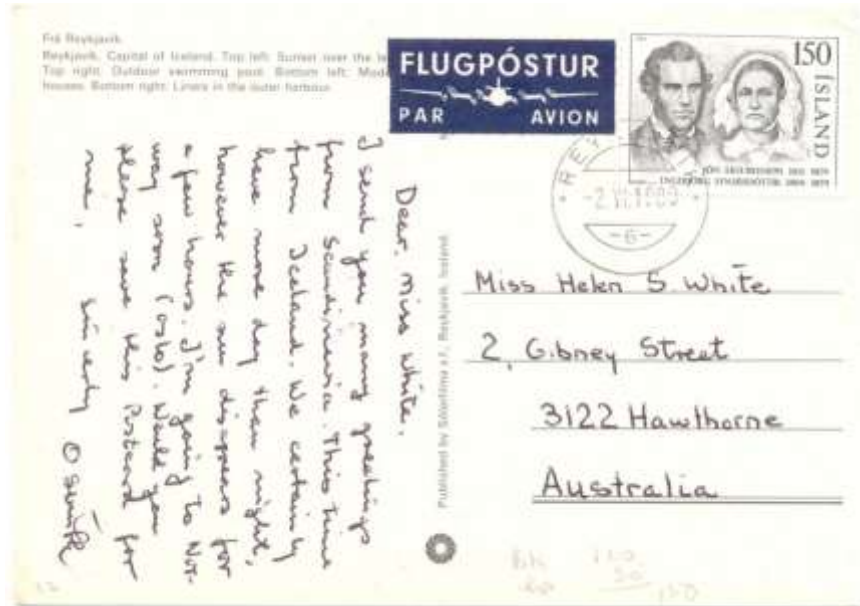 Frá Reykjavík.
Reykjavik, Capital of Iceland. Top left: Sunset over the
Top right: Outdoor swimming pool. Bottom left:
houses. Bottom right: Liners in the outer harbour.
FLUGPÓSTUR
PAR AVION
150
ÍSLAND
JÓN SIGURÐSSON 1811 1879
INGIBJÖRG EINARSDÓTTIR 1804 1879
-6-
Dear. Miss White.
I send you many greetings
from Scandinavia. This time
from Iceland. We certainly
have more day than night,
however the sun disapears for
a few hours. I'm going to Nor-
way soon (oslo). Would you
please save this Postcard for
me, Sincerly
Published by Sólarfilma s.f. Reykjavík. Iceland.
Miss Helen S. White
2, Gibney Street
3122 Hawthorne
Australia